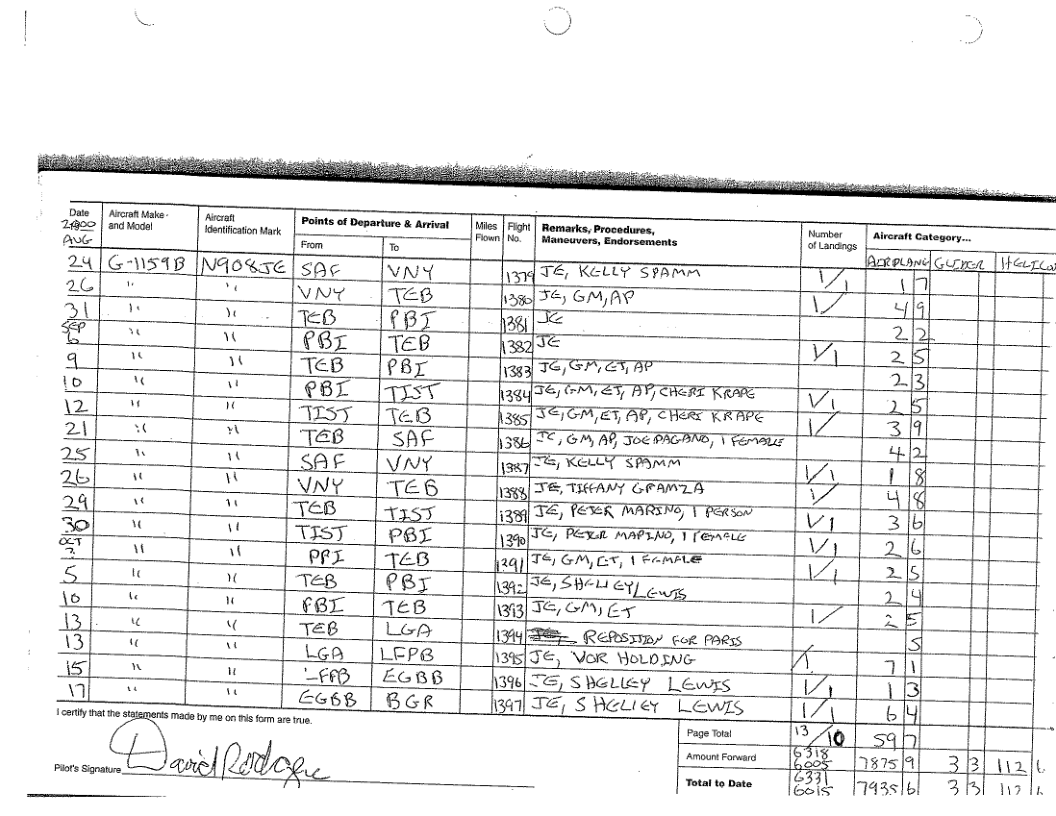 Date Aircraft Make and Model Aircraft Identification Mark Points of Departure & Arrival Miles Flown Flight No. Remarks, Procedures, Maneuvers, Endorsements Number of Landings Aircraft Category...
2000 From To
AUG AIRPLANE GLIDER
24 G-1159B N908JE SAF VNY 1379 JE, KELLY SPAMM 1/1 1 7
26 " " VNY TEB 1380 JE, GM, AP 1/ 4 9
31 " " TEB PBI 1381 JE 2 2
SEP
6 " " PBI TEB 1382 JE 1/1 2 5
9 " " TEB PBI 1383 JE, GM, ET, AP 2 3
10 " " PBI TIST 1384 JE, GM, ET, AP, CHERI KRAPE 1/1 2 5
12 " " TIST TEB 1385 JE, GM, ET, AP, CHERI KRAPE 1/ 3 9
21 " " TEB SAF 1386 JE, GM, AP, JOE PAGANO, 1 FEMALE 4 2
25 " " SAF VNY 1387 JE, KELLY SPAMM 1/1 1 8
26 " " VNY TEB 1388 JE, TIFFANY GRAMZA 1/ 4 8
29 " " TEB TIST 1389 JE, PETER MARINO, 1 PERSON 1/1 3 6
30 " " TIST PBI 1390 JE, PETER MARINO, 1 FEMALE 1/1 2 6
OCT
" " PBI TEB 1391 JE, GM, ET, 1 FEMALE 1/1 2 5
5 " " TEB PBI 1392 JE, SHELLEY LEWIS 2 4
10 " " PBI TEB 1393 JE, GM, ET 1/ 2 5
13 " " TEB LGA 1394 REPOSITION FOR PARIS 5
13 " " LGA LFPB 1395 JE, VOR HOLDING /1 7 1
15 " " LFPB EGBB 1396 JE, SHELLEY LEWIS 1/1 1 3
17 " " EGBB BGR 1397 JE, SHELLEY LEWIS 1/1 6 4
I certify that the statements made by me on this form are true.
Page Total 13/10 59 7
Amount Forward 6318 6005 7875 9 3 3 112 6
Pilot's Signature David Rodgers
Total to Date 6331 6015 7935 6 3 3 112 6